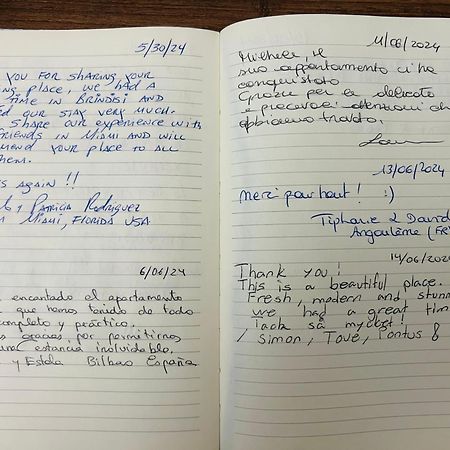 5/30/24
YOU FOR SHARING YOUR
PLACE, WE HAD A
TIME IN BRINDISI AND
OUR STAY VERY MUCH.
SHARE OUR EXPERIENCE WITH
FRIENDS IN MIAMI AND WILL
YOUR PLACE TO ALL
AGAIN !!
Y PATRICIA RODRIGUEZ
MIAMI, FLORIDA USA
6/06/24
encantado el apartamento
que hemos tenido de todo
completo y práctico.
gracias por permitirnos
una estancia inolvidable.
y Estela Bilbao España
11/06/2024
suo appartamento ci ha
conquistato
Grazie per le delicate
e precavoci attenzioni che
abbiamo trovato.
13/06/2024
merci pour tout ! :)
Tiphanie & David
Angoulême (FR
14/06/2024
Thank you!
This is a beautiful place.
Fresh, modern and
we had a great time
tack så mycket!
Simon, Tove, Pontus &